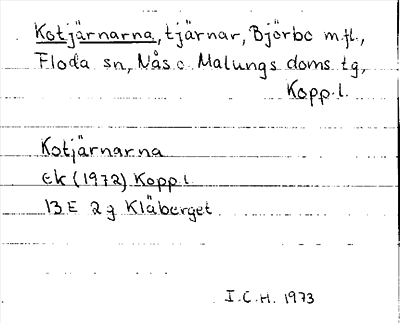 Kotjärnarna, tjärnar, Björbo m.fl.,
Floda sn, Nås o. Malungs doms. tg,
Kopp. l.
Kotjärnarna
Ek (1972) Kopp l.
13 E 2 g Kläberget
I.C.H. 1973